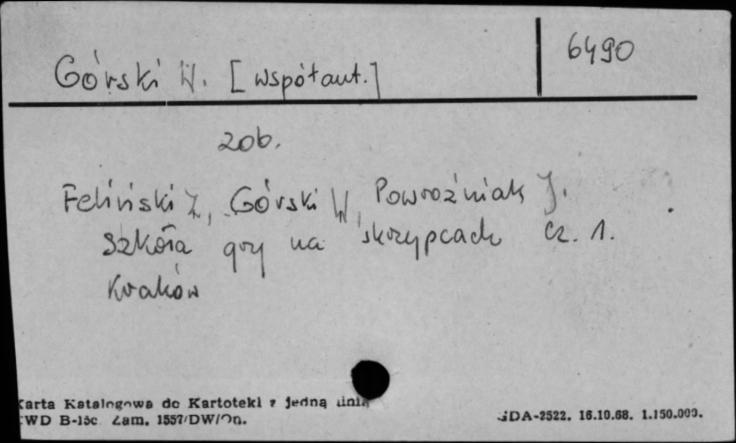 6490
Górski W. [współaut.]
zob.
Feliński Z, Górski W, Powroźniak J.
Szkoła gry na skrzypcach Cz. 1.
Kraków
Karta Katalogowa do Kartoteki z jedną linią
CWD B-15c Zam. 1557/DW/
GDA-2522. 16.10.68. 1.150.000.